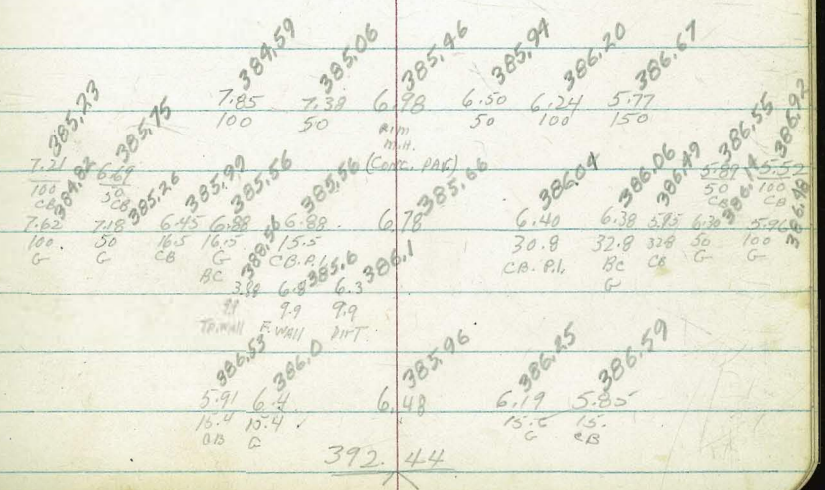 384.59 385.06 385.46 385.94 386.20 386.67
7.85 7.38 6.98 6.50 6.24 5.77
100 50 50 100 150
Rim
M.H.
(Conc. PAV.)
385.23 385.75 386.55 386.92
7.21 6.69 5.89 5.52
100 50 50 100
CB CB CB CB
384.82 385.26 385.99 385.56 385.56 385.66 386.04 386.06 386.49 386.14 386.48
7.62 7.18 6.45 6.88 6.88 6.78 6.40 6.38 5.95 6.30 5.96
100 50 16.5 16.5 15.5 30.8 32.8 32.8 50 100
G G CB G CB.P.I. CB. P.I. BC CB G G
BC G
388.56 385.6 386.1
3.88 6.8 6.3
9.9 9.9 9.9
TP.Wall F. WAll DIRT
386.53 386.0 385.96 386.25 386.59
5.91 6.4 6.48 6.19 5.85
15.4 15.4 15.
CB G G CB
392.44